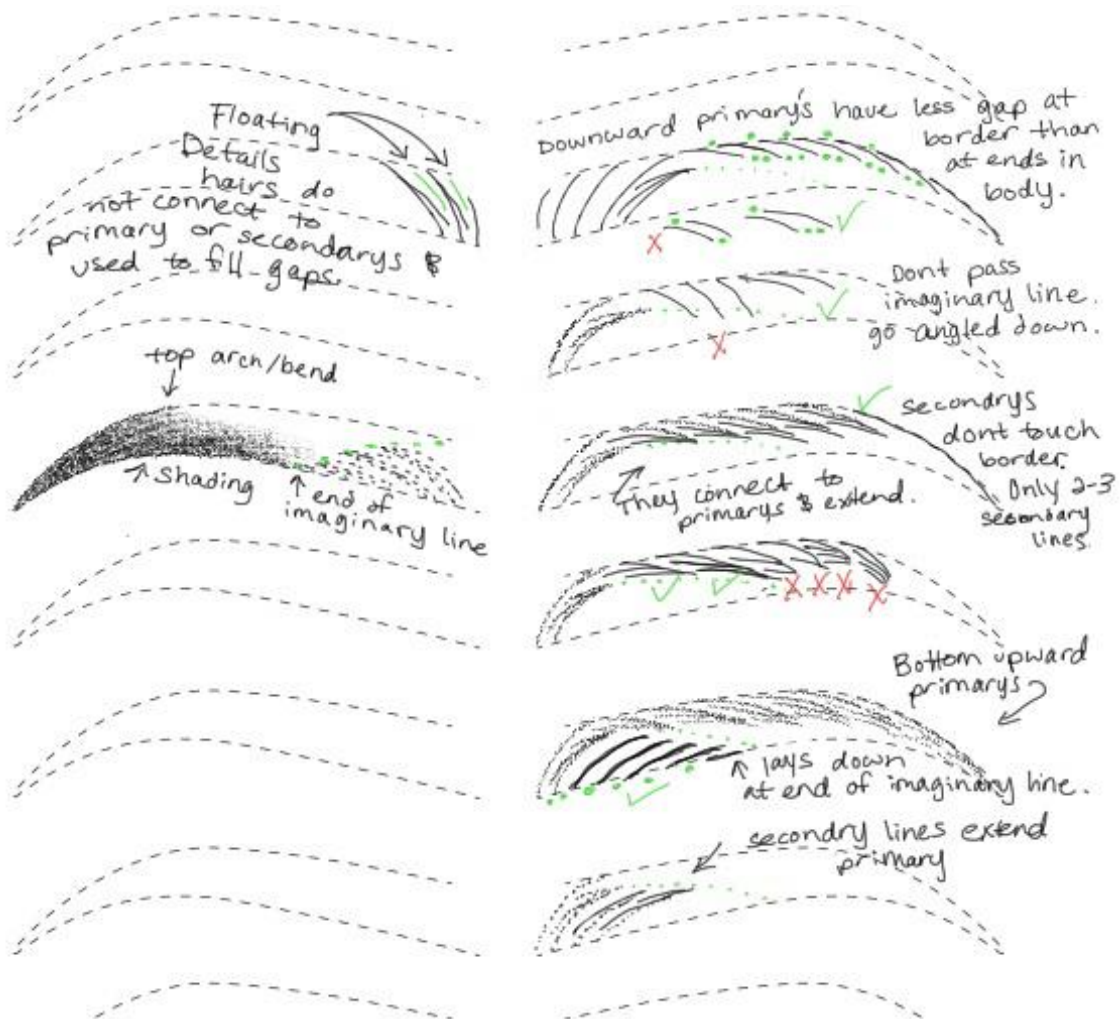 Floating
Details
hairs do
not connect to
primary or secondarys &
used to fill gaps.
top arch/bend
Shading
end of
imaginary line
Downward primary's have less gap at
border than
at ends in
body.
Dont pass
imaginary line.
go angled down.
secondrys
dont touch
border.
Only 2-3
secondary
lines.
They connect to
primarys & extend.
Bottom upward
primarys
lays down
at end of imaginary line.
secondry lines extend
primary